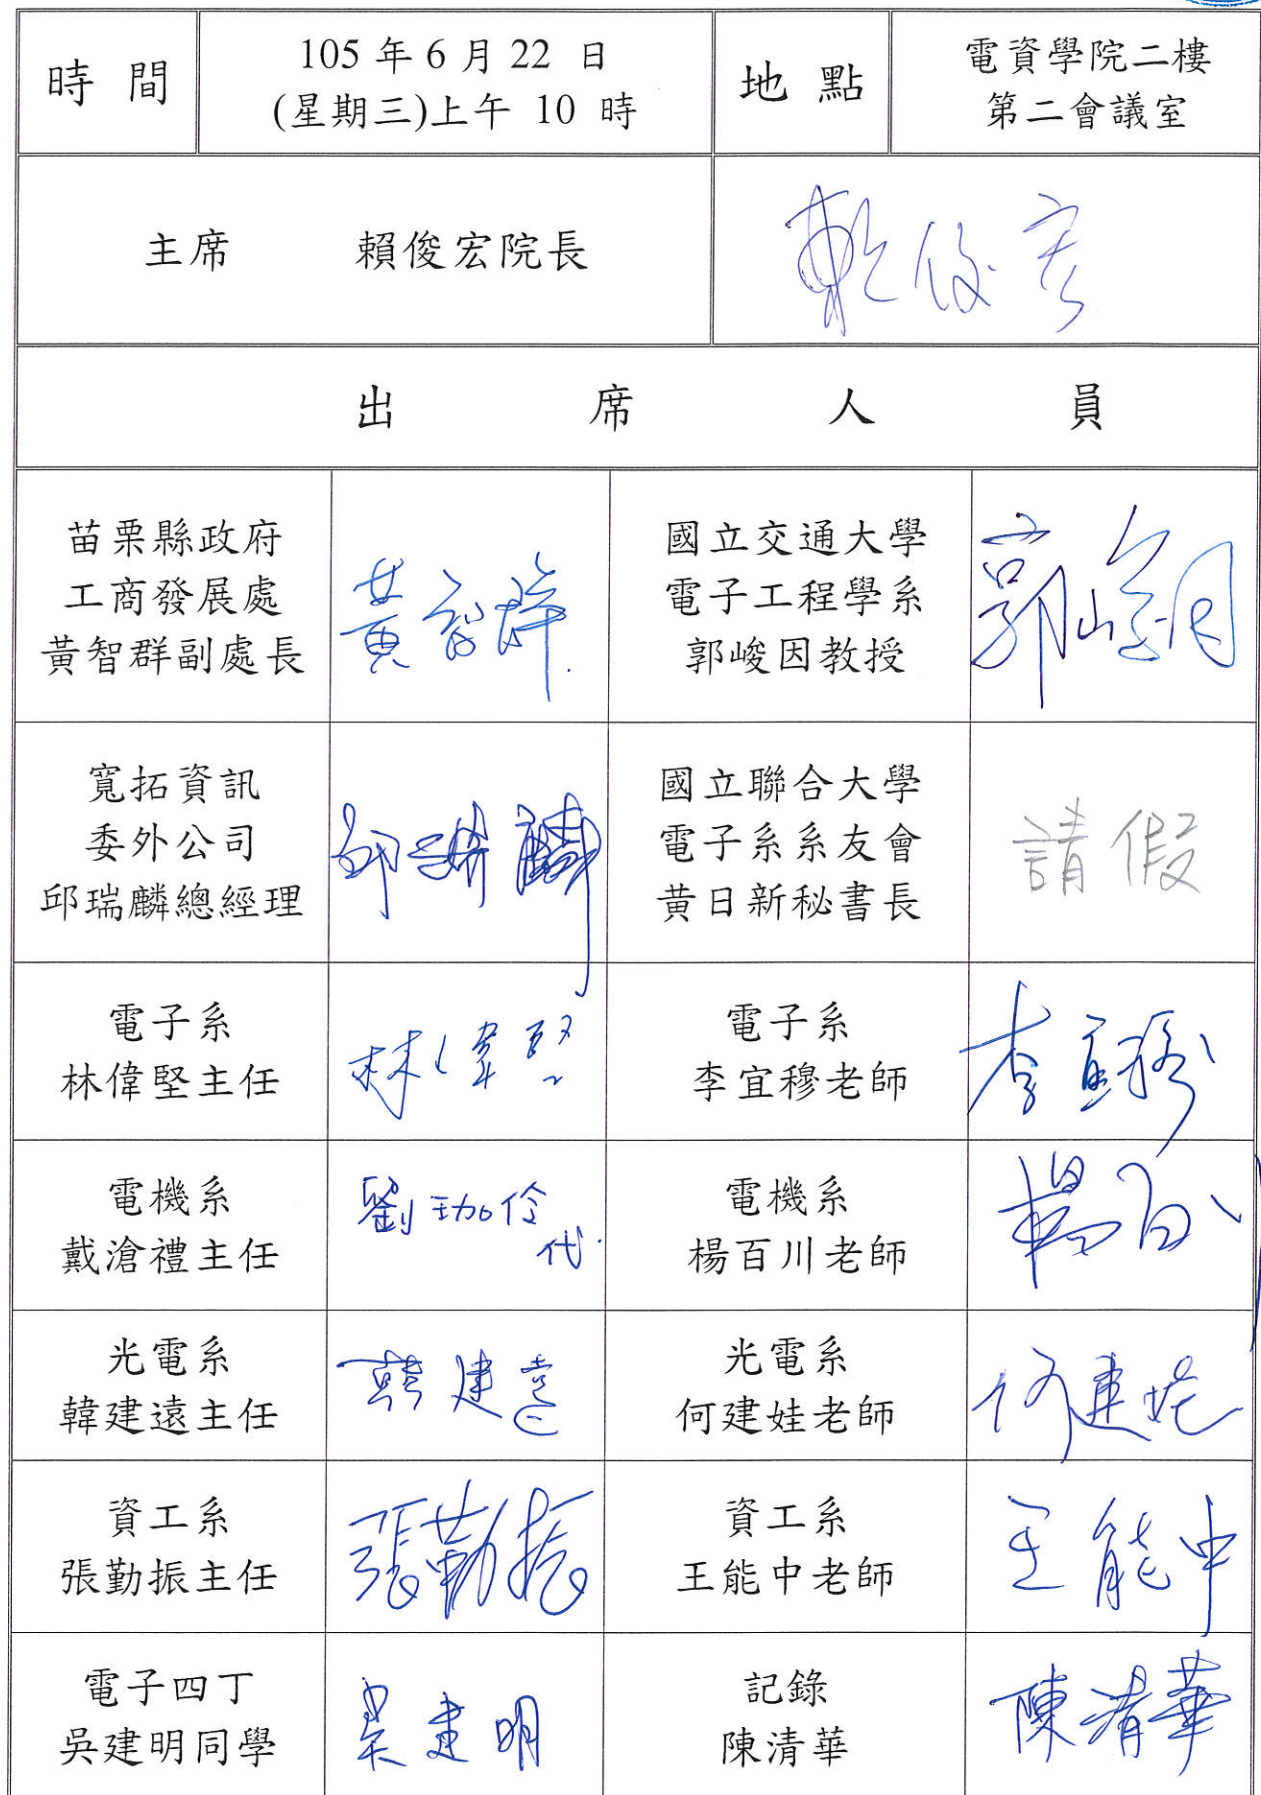 時 間
105 年 6 月 22 日
(星期三)上午 10 時
地 點
電資學院二樓
第二會議室
主席 賴俊宏院長
賴俊宏
出 席 人 員
苗栗縣政府
工商發展處
黃智群副處長
黃智群
國立交通大學
電子工程學系
郭峻因教授
郭峻因
寬拓資訊
委外公司
邱瑞麟總經理
邱瑞麟
國立聯合大學
電子系系友會
黃日新秘書長
請假
電子系
林偉堅主任
林偉堅
電子系
李宜穆老師
李宜穆
電機系
戴滄禮主任
劉珈伶
代
電機系
楊百川老師
楊百川
光電系
韓建遠主任
韓建遠
光電系
何建娃老師
何建娃
資工系
張勤振主任
張勤振
資工系
王能中老師
王能中
電子四丁
吳建明同學
吳建明
記錄
陳清華
陳清華